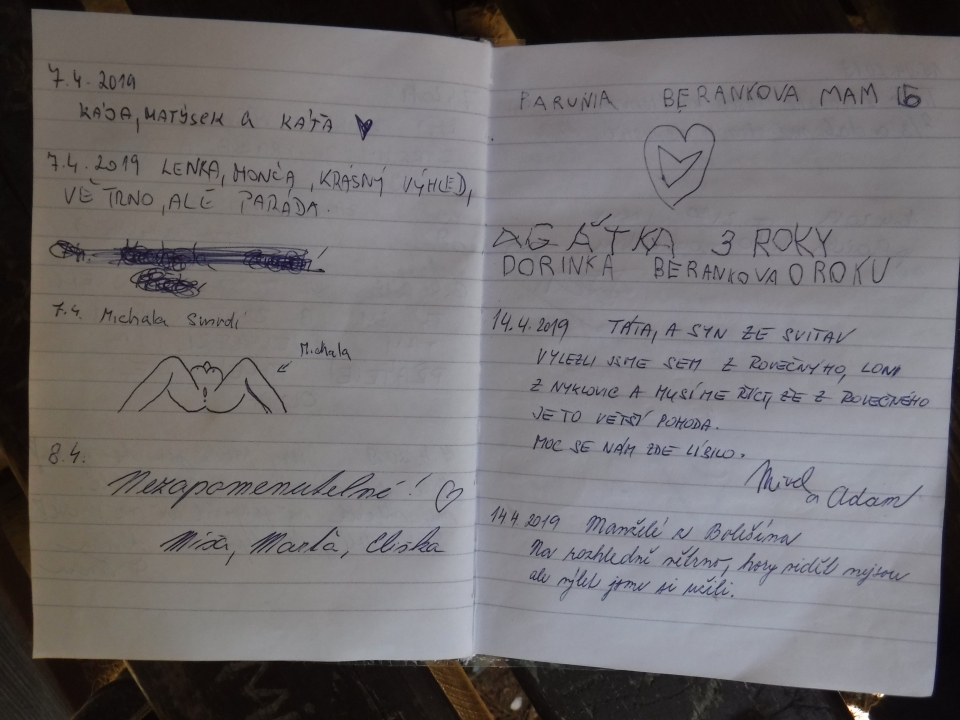 7.4.2019
KÁJA, MATÝSEK a KÁŤA
7.4.2019 LENKA, MONČA, KRÁSNÝ VÝHLED,
VĚTRNO, ALE PARÁDA.
7.4. Michala Smrdí
Michala
8.4.
Nezapomenutelné!
Míša, Marťa, Eliška
PARUNIA BERANKOVA MAM 6
AGÁTKA 3 ROKY
DORINKA BERANKOVA 0 ROKU
14.4.2019 TÁTA, A SYN ZE SVITAV
VYLEZLI JSME SEM Z ROVEČNÝHO, LONI
Z NYKLOVIC A MUSÍME ŘÍCT, ŽE Z ROVEČNÉHO
JE TO VĚTŠÍ POHODA.
MOC SE NÁM ZDE LÍBILO.
a Adam
14.4.2019 Manželé z Bolešína
Na rozhledně větrno, hory vidět nejsou
ale výlet jsme si užili.